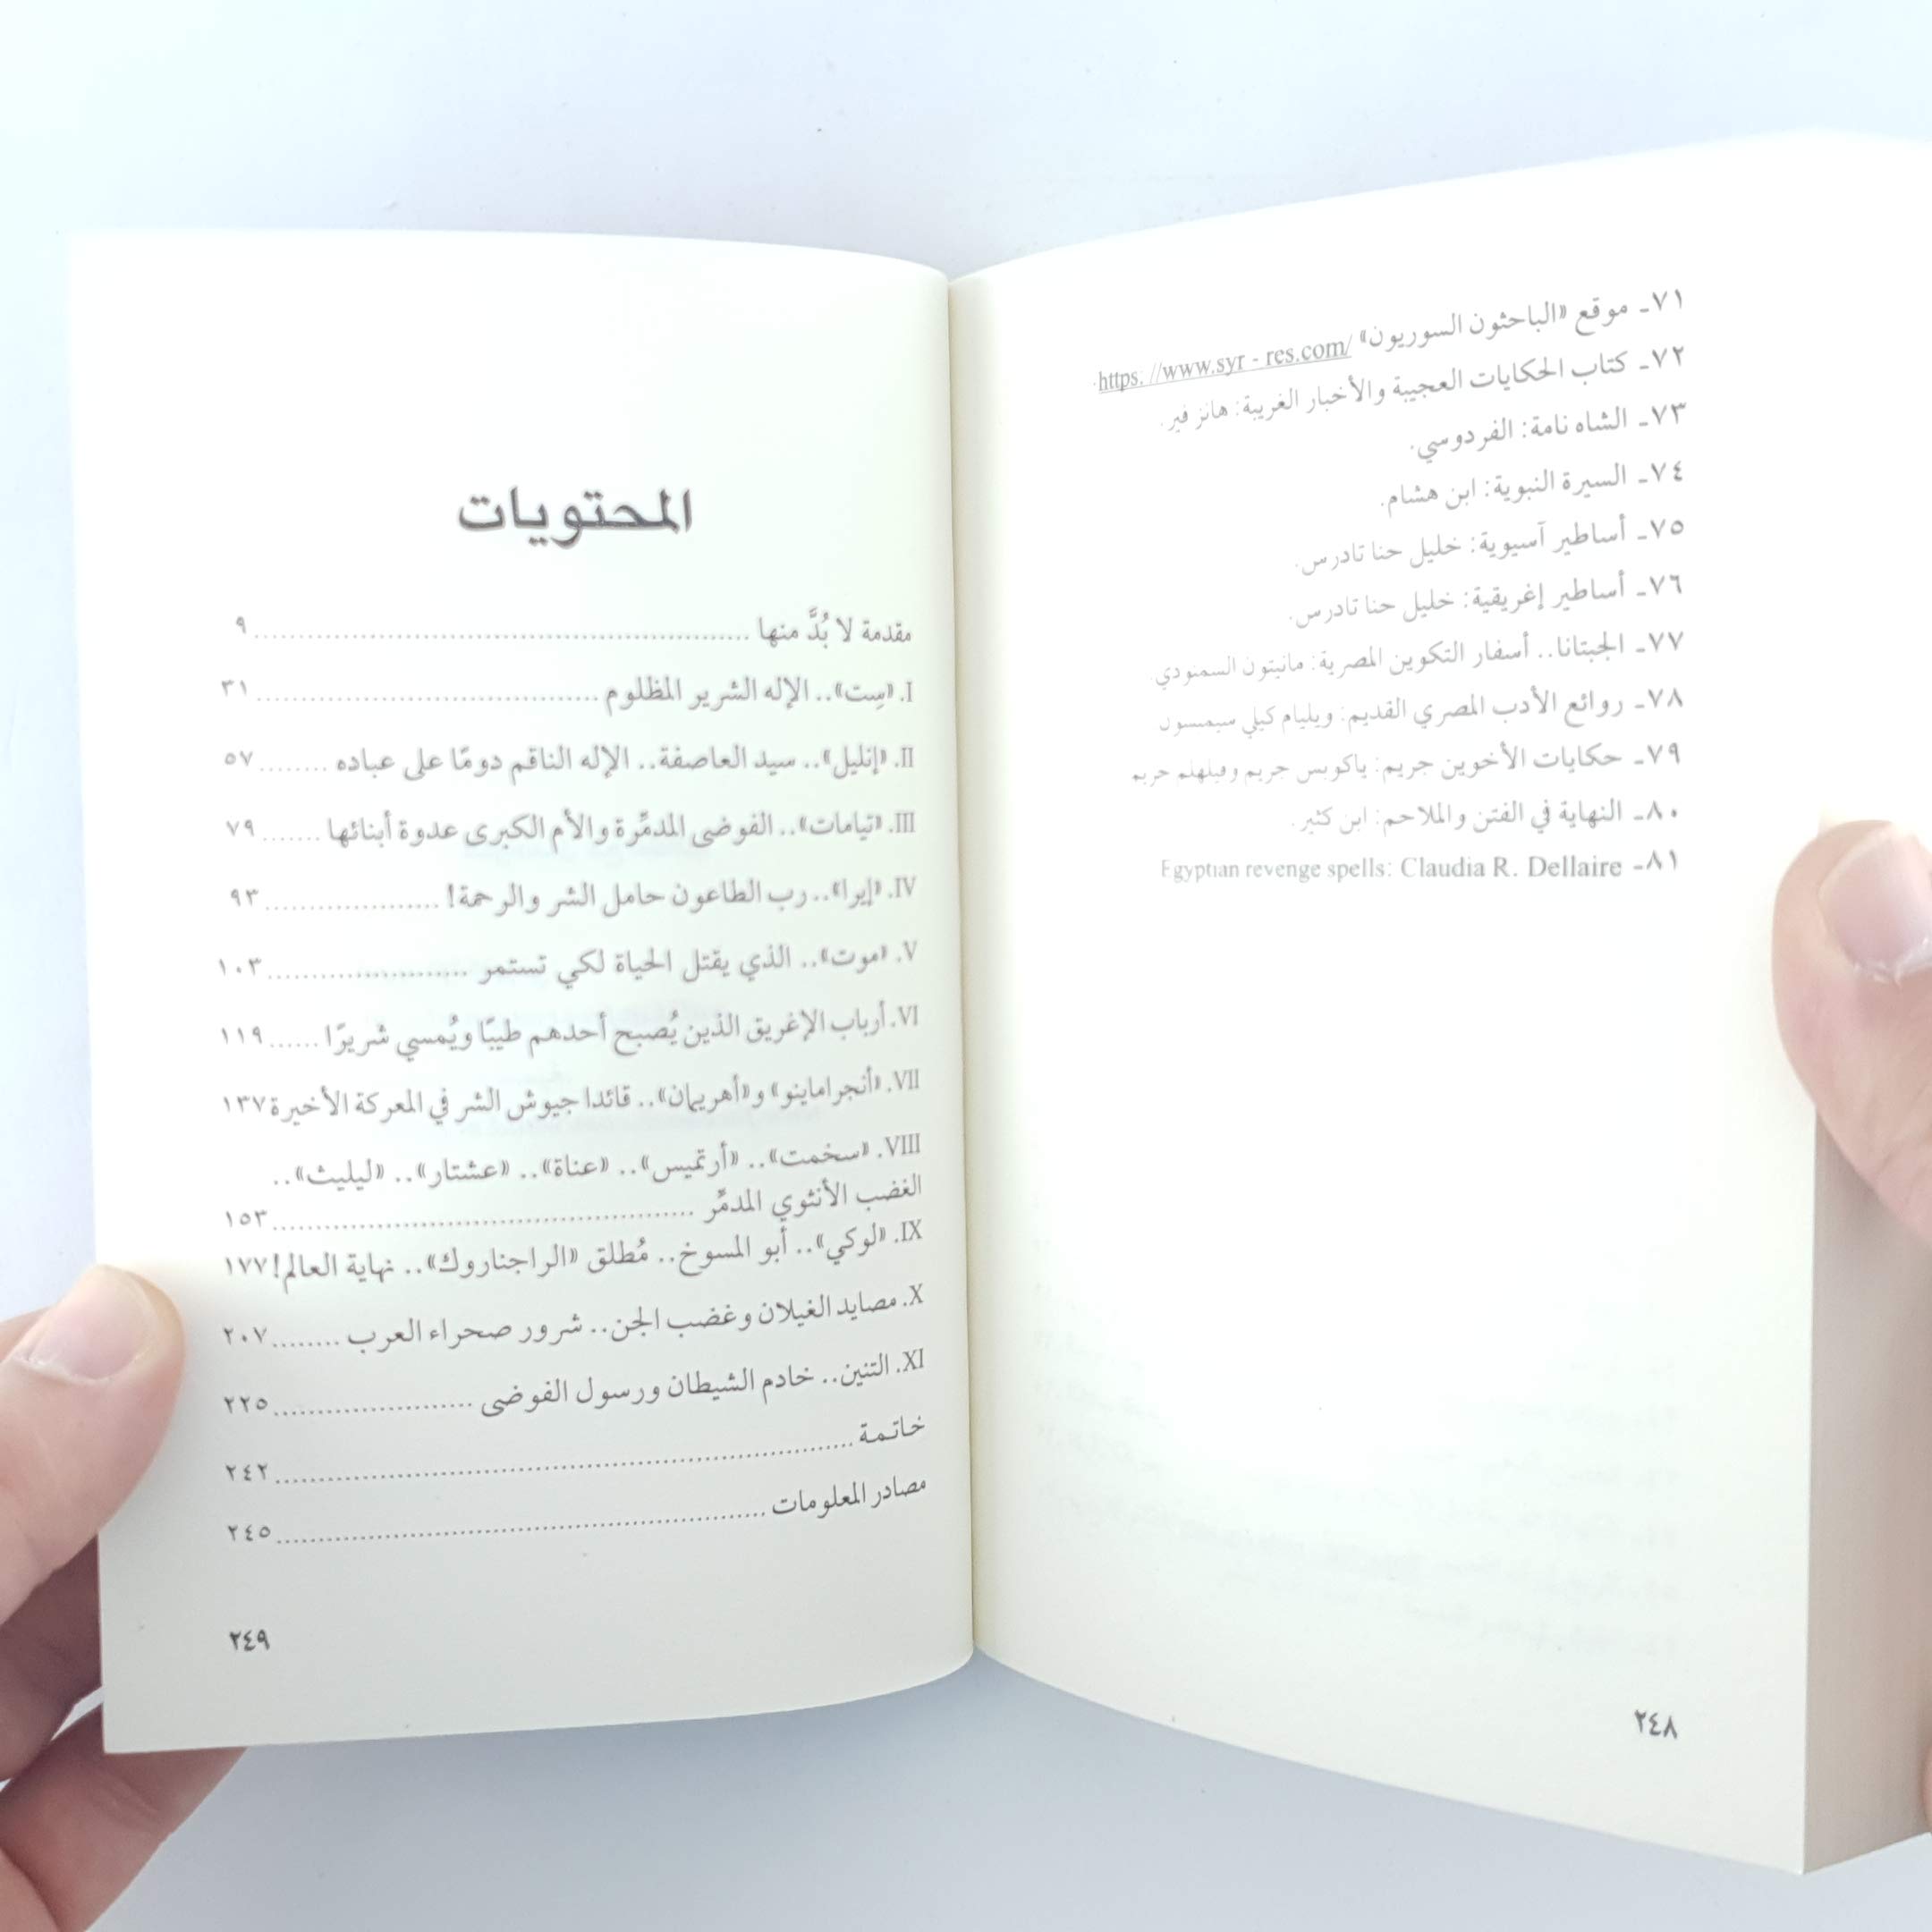 ٧١ـ موقع «الباحثون السوريون» https: //www.syr - res.com/.
٧٢ـ كتاب الحكايات العجيبة والأخبار الغريبة: هانز فير.
٧٣ـ الشاه نامة: الفردوسي.
٧٤ـ السيرة النبوية: ابن هشام.
٧٥ـ أساطير آسيوية: خليل حنا تادرس.
٧٦ـ أساطير إغريقية: خليل حنا تادرس.
٧٧ـ الجبتانا.. أسفار التكوين المصرية: مانيتون السمنودي.
٧٨ـ روائع الأدب المصري القديم: ويليام كيلي سيمبسون
٧٩ـ حكايات الأخوين جريم: ياكوبس جريم وفيلهلم جريم
٨٠ـ النهاية في الفتن والملاحم: ابن كثير.
٨١ـ Egyptian revenge spells: Claudia R. Dellaire
٢٤٨
المحتويات
مقدمة لا بُدَّ منها ........ ٩
I. «سِت».. الإله الشرير المظلوم ........ ٣١
II. «إنليل».. سيد العاصفة.. الإله الناقم دومًا على عباده ........ ٥٧
III. «تيامات».. الفوضى المدمِّرة والأم الكبرى عدوة أبنائها ....... ٧٩
IV. «إيرا».. رب الطاعون حامل الشر والرحمة! ........ ٩٣
V. «موت».. الذي يقتل الحياة لكي تستمر ........ ١٠٣
VI. أرباب الإغريق الذين يُصبح أحدهم طيبًا ويُمسي شريرًا ...... ١١٩
VII. «أنجراماينو» و«أهريمان».. قائدا جيوش الشر في المعركة الأخيرة ١٣٧
VIII. «سخمت».. «أرتميس».. «عناة».. «عشتار».. «ليليث»..
الغضب الأنثوي المدمِّر ........ ١٥٣
IX. «لوكي».. أبو المسوخ.. مُطلق «الراجناروك».. نهاية العالم! ١٧٧
X. مصايد الغيلان وغضب الجن.. شرور صحراء العرب ........ ٢٠٧
XI. التنين.. خادم الشيطان ورسول الفوضى ........ ٢٢٥
خاتمة ........ ٢٤٢
مصادر المعلومات ........ ٢٤٥
٢٤٩